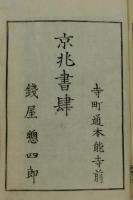 寺町通本能寺前
京兆書肆
錢屋惣四郎